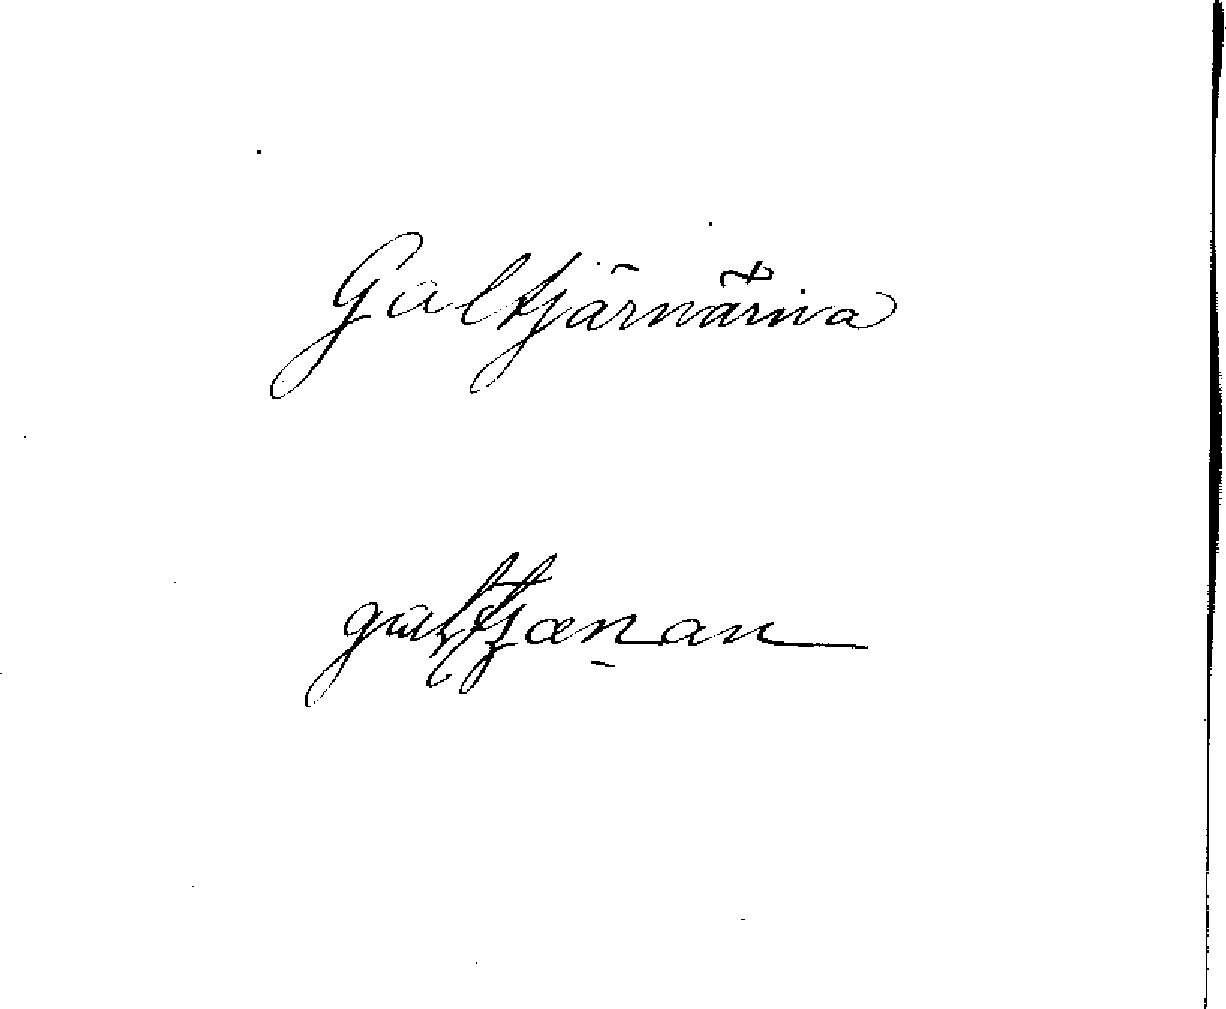 Galtjärnärna
galtjænan